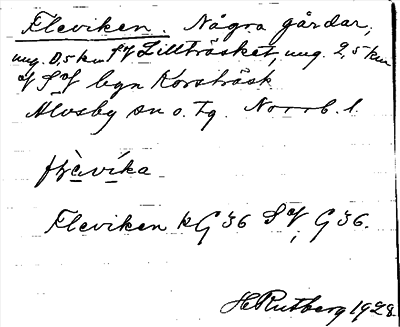 Fleviken. Några gårdar,
ung. 0,5 km SV Lillträsket, ung. 2,5 km
af S af byn Korsträsk
Älvsby sn o. Tg. Norrb. l.
Fleviken k G 36 S af, G 36.
H Rutberg 1928